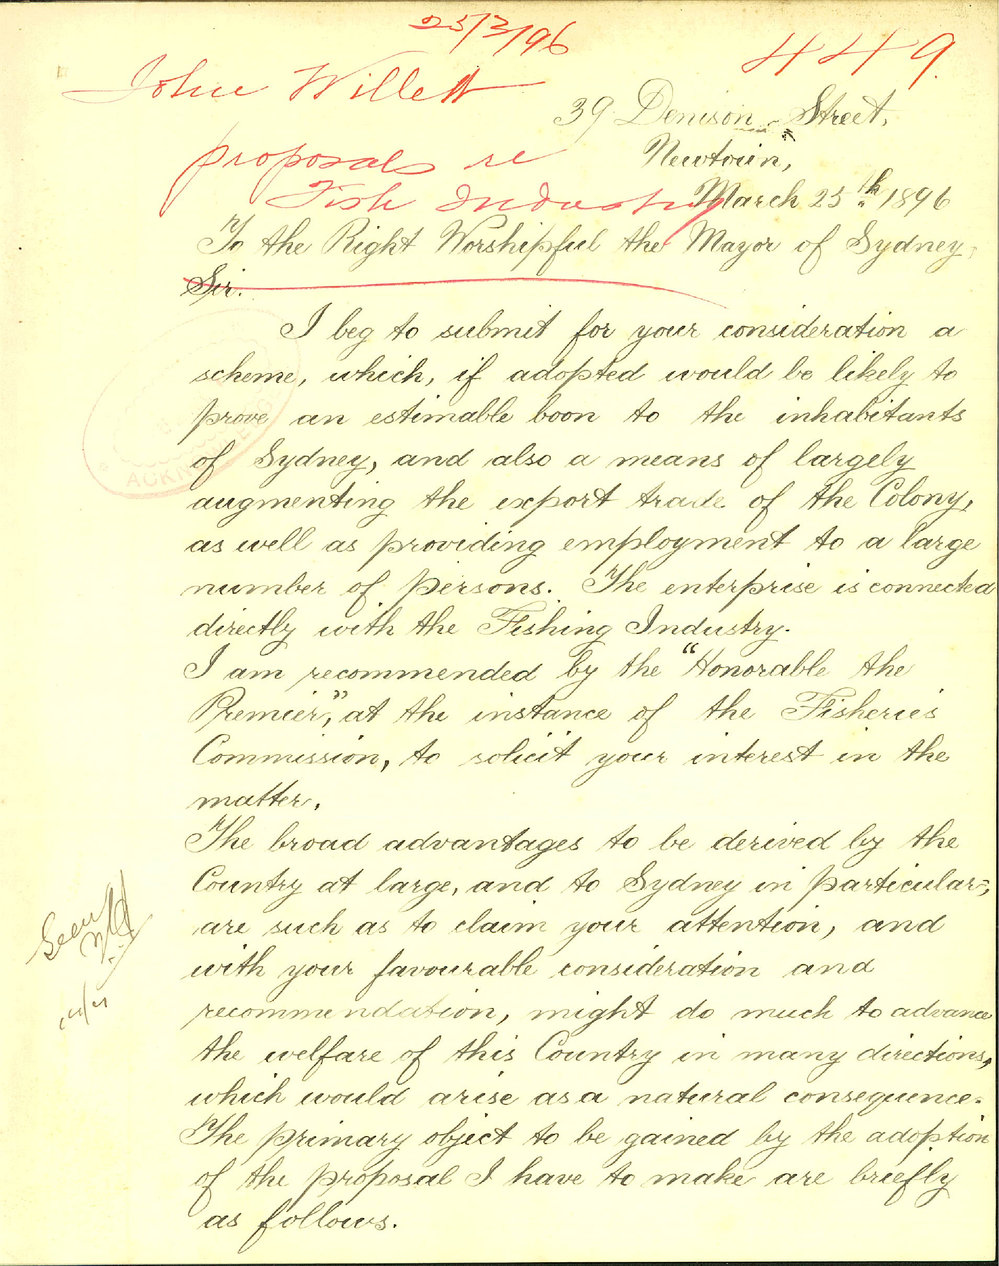 25/3/96
449.
John Willett
39 Denison Street,
proposals re
Newtown,
Fish Industry
March 25th 1896
To the Right Worshipful the Mayor of Sydney,
Sir.
I beg to submit for your consideration a
scheme, which, if adopted would be likely to
prove an estimable boon to the inhabitants
of Sydney, and also a means of largely
augmenting the export trade of the Colony,
as well as providing employment to a large
number of persons. The enterprise is connected
directly with the Fishing Industry.
I am recommended by the "Honorable the
Premier", at the instance of the Fisheries
Commission, to solicit your interest in the
matter.
The broad advantages to be derived by the
Country at large, and to Sydney in particular,
are such as to claim your attention, and
with your favourable consideration and
recommendation, might do much to advance
the welfare of this Country in many directions,
which would arise as a natural consequence.
The primary object to be gained by the adoption
of the proposal I have to make are briefly
as follows.
Seen